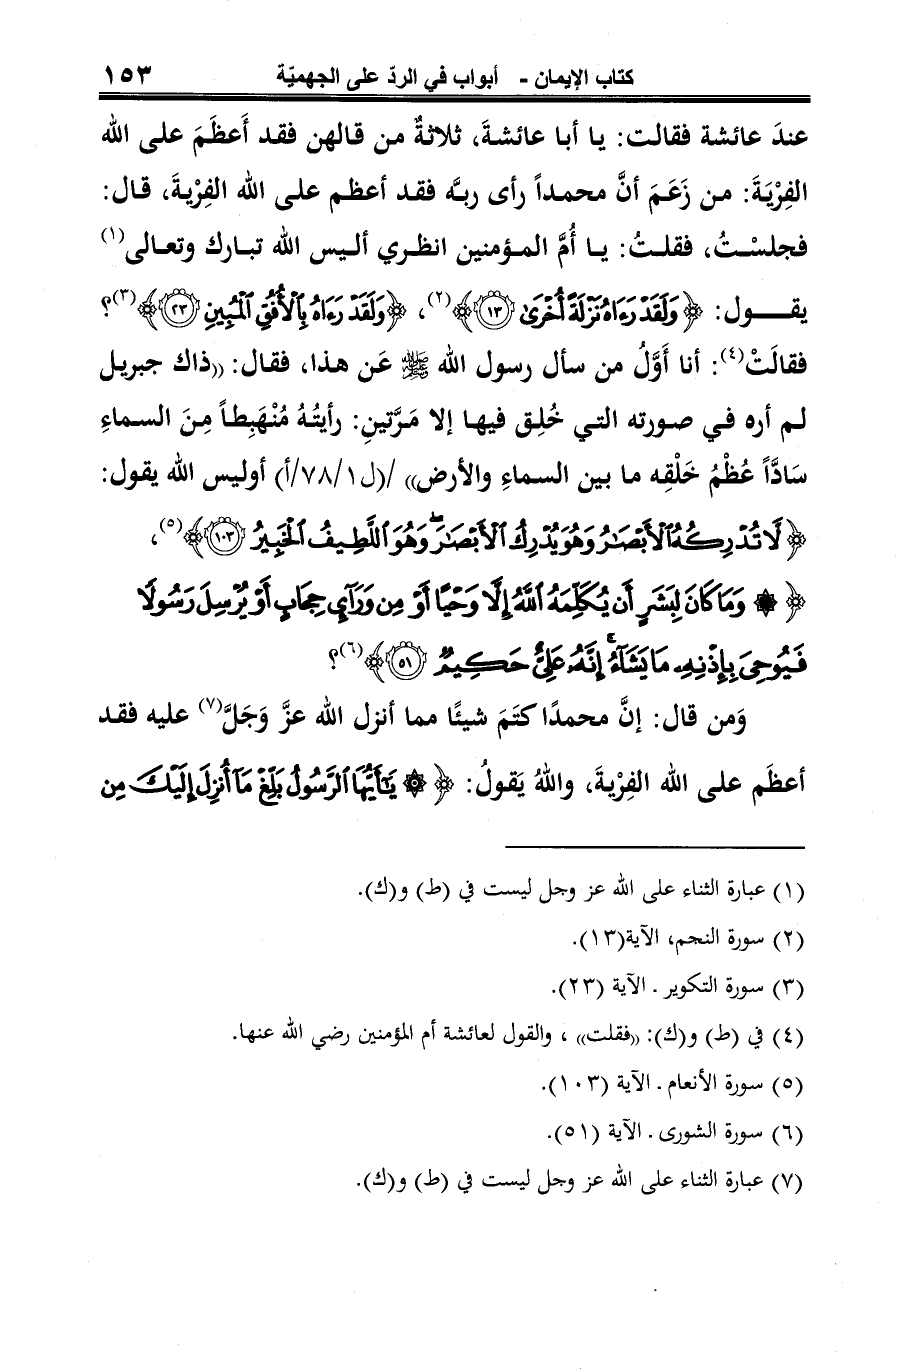 كتاب الإيمان - أبواب في الردّ على الجهميّة ١٥٣
عندَ عائشة فقالت: يا أبا عائشةَ، ثلاثةٌ من قالهن فقد أَعظَمَ على الله
الفِرْيَةَ: من زَعَمَ أنَّ محمداً رأى ربهَّ فقد أعظم على الله الفِرْيةَ، قال:
فجلسْتُ، فقلتُ: يا أُمَّ المؤمنين انظري أليس الله تبارك وتعالى(١)
يقول: ﴿وَلَقَدْ رَءَاهُ نَزْلَةً أُخْرَىٰ ١٣﴾(٢)، ﴿وَلَقَدْ رَءَاهُ بِٱلْأُفُقِ ٱلْمُبِينِ ٢٣﴾(٣)؟
فقالَتْ(٤): أنا أَوَّلُ من سأل رسول الله ﷺ عَن هذا، فقال: «ذاك جبريل
لم أره في صورته التي خُلِق فيها إلا مَرَّتينِ: رأيتُهُ مُنْهَبِطاً مِنَ السماءِ
سَادَّاً عُظْمُ خَلْقِه ما بين السماءِ والأرض» /(ل٧٨/١/أ) أوليس الله يقول:
﴿لَا تُدْرِكُهُ ٱلْأَبْصَٰرُ وَهُوَ يُدْرِكُ ٱلْأَبْصَٰرَۖ وَهُوَ ٱللَّطِيفُ ٱلْخَبِيرُ ١٠٣﴾(٥)،
﴿۞ وَمَا كَانَ لِبَشَرٍ أَن يُكَلِّمَهُ ٱللَّهُ إِلَّا وَحْيًا أَوْ مِن وَرَآئِ حِجَابٍ أَوْ يُرْسِلَ رَسُولًا
فَيُوحِىَ بِإِذْنِهِۦ مَا يَشَآءُۚ إِنَّهُۥ عَلِىٌّ حَكِيمٌ ٥١﴾(٦)؟
وَمن قال: إنَّ محمدًا كتَمَ شيئًا مما أنزل الله عزَّ وَجَلَّ(٧) عليه فقد
أعظَم على الله الفِرْيةَ، واللهُ يَقولُ: ﴿۞ يَٰٓأَيُّهَا ٱلرَّسُولُ بَلِّغْ مَآ أُنزِلَ إِلَيْكَ مِن
(١) عبارة الثناء على الله عز وجل ليست في (ط) و(ك).
(٢) سورة النجم، الآية(١٣).
(٣) سورة التكوير . الآية (٢٣).
(٤) في (ط) و(ك): «فقلت» ، والقول لعائشة أم المؤمنين رضي الله عنها.
(٥) سورة الأنعام . الآية (١٠٣).
(٦) سورة الشورى . الآية (٥١).
(٧) عبارة الثناء على الله عز وجل ليست في (ط) و(ك).